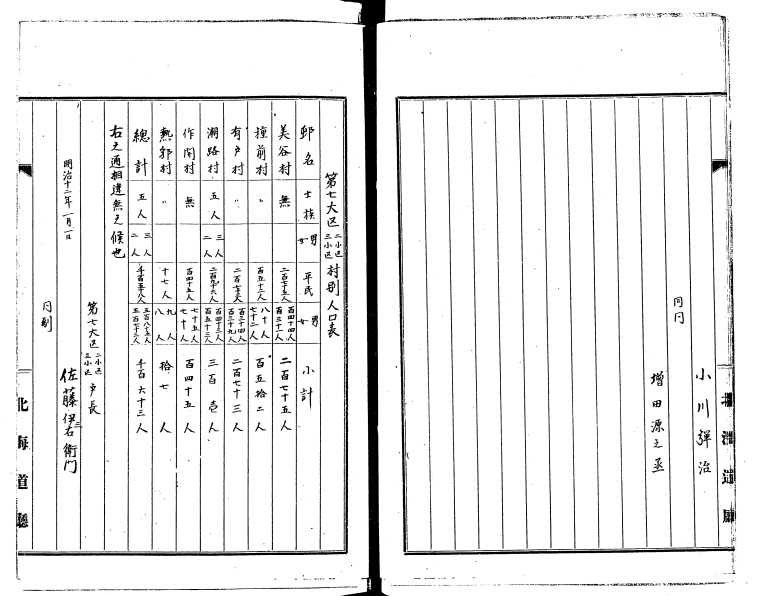 小川彈治
増田源之丞
同同
第七大区 二小区 三小区 村別人口表
邨名 士族 男 女 平民 男 女 小計
美谷村 無 二百七十五人 百四十四人 百三十一人 二百七十五人
撞前村 〃 百五十二人 八十人 七十二人 百五拾二人
有戸村 〃 二百七十三人 百三十四人 百三十九人 二百七十三人
潮路村 五人 三人 二人 二百九十六人 百四十三人 百五十三人 三百壱人
作開村 無 百四十五人 七十五人 七十人 百四十五人
熱郛村 〃 十七人 九人 八人 拾七人
總計 五人 三人 二人 千百五十八人 五百八十五人 五百七十三人 千百六十三人
右之通相違無之候也
第七大区 二小区 三小区 戸長
明治十二年一月一日
佐藤伊三右衛門
同副
北海道廳